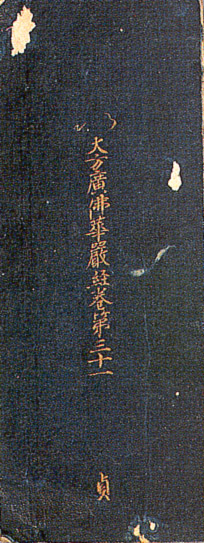 大方廣佛華嚴経卷第三十一
貞